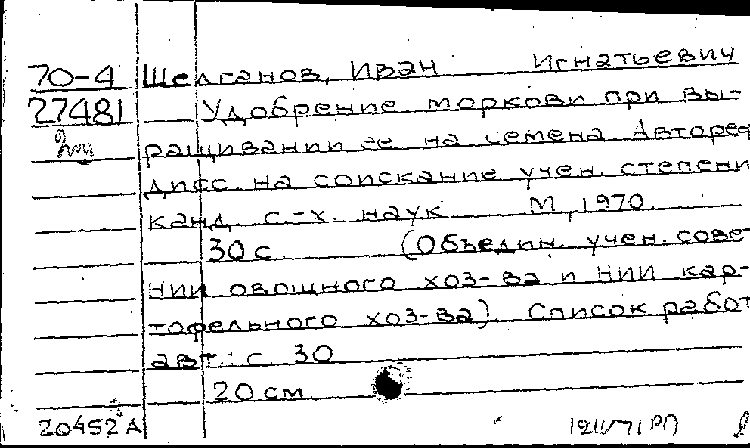 70-4 Шелганов, Иван Игнатьевич
27481 Удобрение моркови при вы-
ращивании ее на семена. Автореф
дисс. на соискание учен. степени
канд. с.-х. наук М., 1970.
30 с. (Объедин. учен. сове-
НИИ овощного хоз-ва и НИИ кар-
тофельного хоз-ва). Список работ
авт.: с. 30
20 см.
20452 А